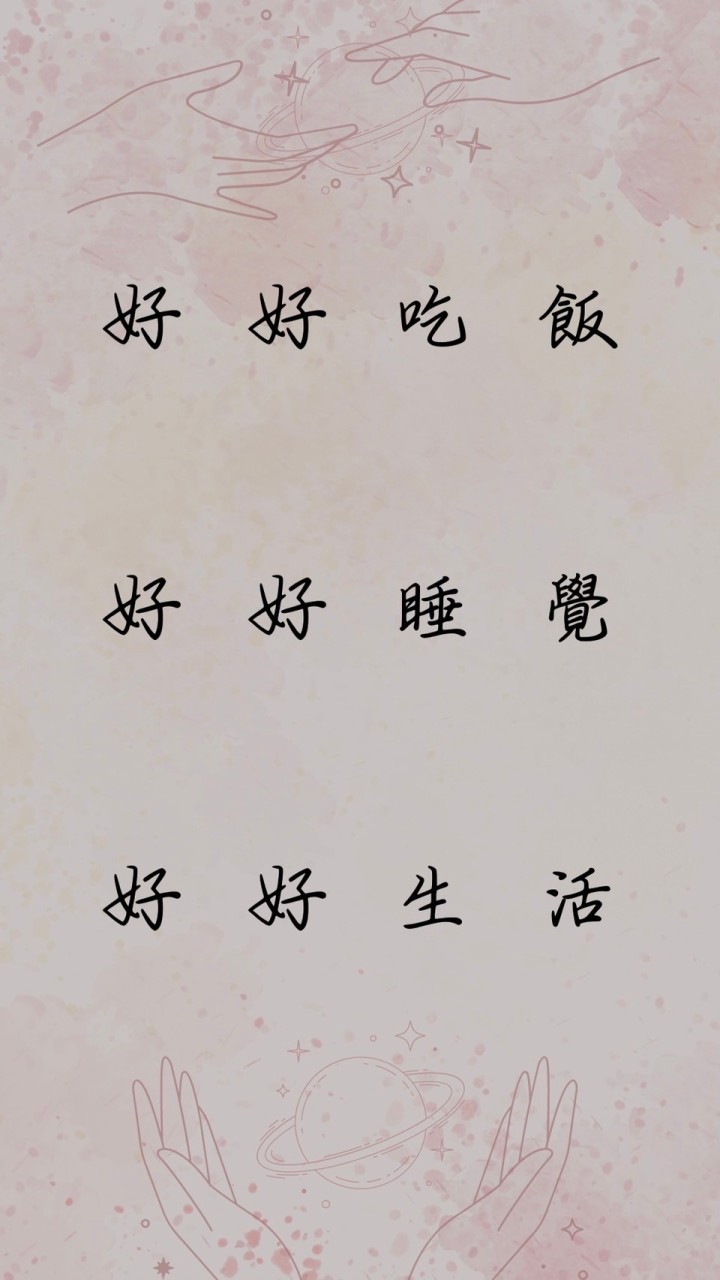 好好吃飯
好好睡覺
好好生活